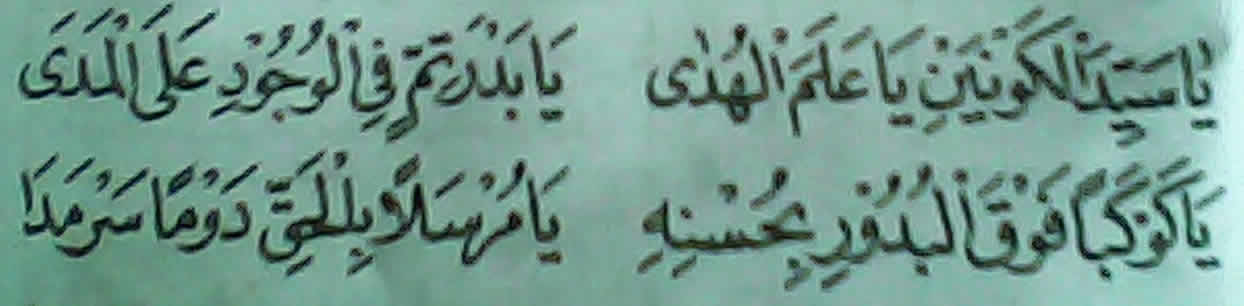 يَا سَيِّدَ الْكَوْنَيْنِ يَا عَلَمَ الْهُدٰى يَا بَدْرَ تِمٍّ فِي الْوُجُوْدِ عَلَى الْمَدَى
يَا كَوْكَبًا فَوْقَ الْبُدُوْرِ بِحُسْنِهِ يَا مُرْسَلًا بِالْحَقِّ دَوْمًا سَرْمَدَا